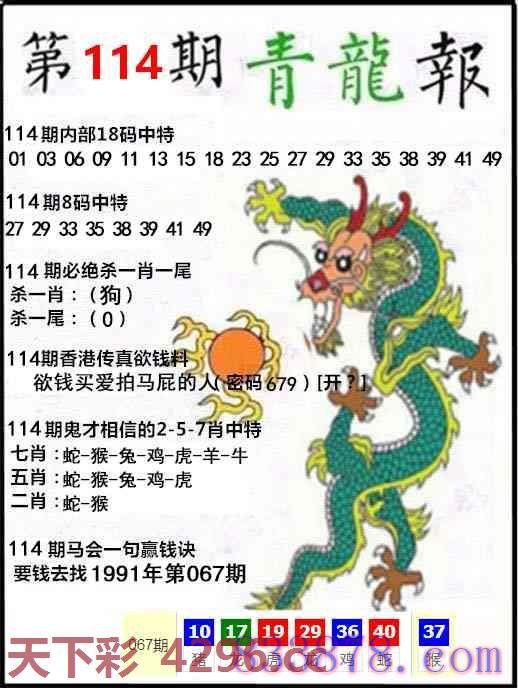 第114期 青龍報
114期内部18码中特
01 03 06 09 11 13 15 18 23 25 27 29 33 35 38 39 41 49
114期8码中特
27 29 33 35 38 39 41 49
114期必绝杀一肖一尾
杀一肖：(狗)
杀一尾：(0)
114期香港传真欲钱料
欲钱买爱拍马屁的人(密码679)[开？]
114期鬼才相信的2-5-7肖中特
七肖：蛇-猴-兔-鸡-虎-羊-牛
五肖：蛇-猴-兔-鸡-虎
二肖：蛇-猴
114期马会一句赢钱诀
要钱去找1991年第067期
067期 10 17 19 29 36 40 37
猪 龙 虎 龙 鸡 蛇 猴
天下彩 4296.cc